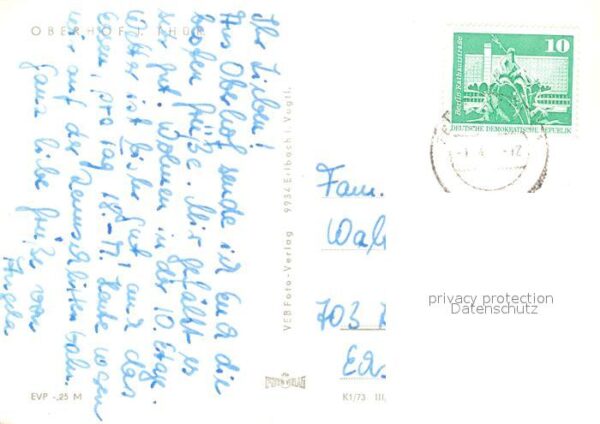 OBERHOF i. THÜR.
Ihr Lieben!
Aus Oberhof sende ich Euch die
besten Grüße. Mir gefällt es
sehr gut. Wohnen in der 10. Etage.
Wetter ist bisher gut auch das
Essen, pro Tag Leute
wir auf der Rennschlittenbahn.
Ganz liebe Grüße von
Angela
EVP -,25 M
VEB Foto-Verlag 9934 Erlbach i. Vogtl.
K1/73 III,
10
Berlin, Rathausstraße
DEUTSCHE DEMOKRATISCHE REPUBLIK
Fam.
Wal
703
privacy protection
Datenschutz